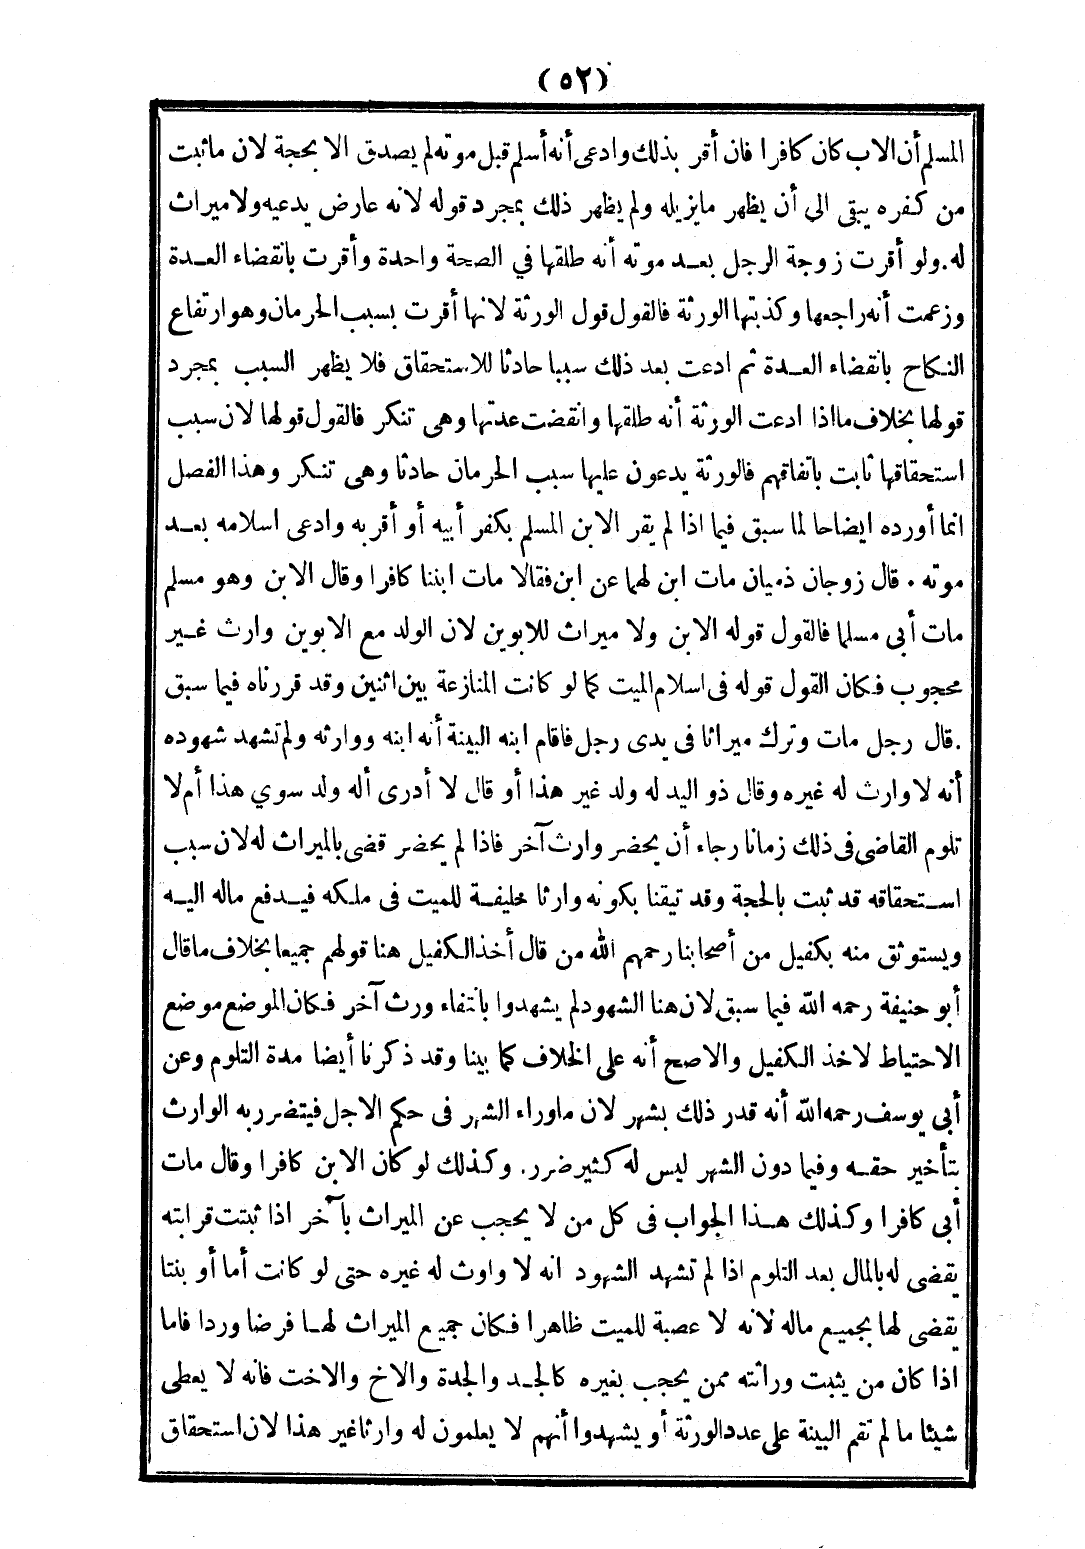 (٥٢)
المسلم أن الاب كان كافرا فان أقر بذلك وادعى أنه أسلم قبل موته لم يصدق الا بحجة لان ما ثبت
من كفره يبقى الي أن يظهر مايزيله ولم يظهر ذلك بمجرد قوله لانه عارض يدعيه ولا ميراث
له . ولو أقرت زوجة الرجل بعد موته أنه طلقها في الصحة واحدة وأقرت بانقضاء العدة
وزعمت أنه راجعها وكذبتها الورثة فالقول قول الورثة لانها أقرت بسبب الحرمان وهو ارتفاع
النكاح بانقضاء العدة ثم ادعت بعد ذلك سببا حادثا للاستحقاق فلا يظهر السبب بمجرد
قولها بخلاف ما اذا ادعت الورثة أنه طلقها وانقضت عدتها وهى تنكر فالقول قولها لان سبب
استحقاقها ثابت باتفاقهم فالورثة يدعون عليها سبب الحرمان حادثا وهى تنكر وهذا الفصل
انما أورده ايضاحا لما سبق فيما اذا لم يقر الابن المسلم بكفر أبيه أو أقربه وادعى اسلامه بعد
موته . قال زوجان ذميان مات ابن لهما عن ابن فقالا مات ابننا كافرا وقال الابن وهو مسلم
مات أبى مسلما فالقول قوله الابن ولا ميراث للابوين لان الولد مع الابوين وارث غير
محجوب فكان القول قوله فى اسلام الميت كما لو كانت المنازعة بين اثنين وقد قررناه فيما سبق
. قال رجل مات وترك ميراثا فى يدى رجل فاقام ابنه البينة أنه ابنه ووارثه ولم تشهد شهوده
أنه لا وارث له غيره وقال ذو اليد له ولد غير هذا أو قال لا أدرى أله ولد سوي هذا أم لا
تلوم القاضى فى ذلك زمانا رجاء أن يحضر وارث آخر فاذا لم يحضر قضى بالميراث له لان سبب
استحقاقه قد ثبت بالحجة وقد تيقنا بكونه وارثا خليفة للميت فى ملكه فيدفع ماله اليه
ويستوثق منه بكفيل من أصحابنا رحمهم الله من قال أخذ الكفيل هنا قولهم جميعا بخلاف ما قال
أبو حنيفة رحمه الله فيما سبق لان هنا الشهود لم يشهدوا بانتفاء ورث آخر فكان الموضع موضع
الاحتياط لاخذ الكفيل والاصح أنه على الخلاف كما بينا وقد ذكرنا أيضا مدة التلوم وعن
أبي يوسف رحمه الله أنه قدر ذلك بشهر لان ماوراء الشهر فى حكم الاجل فيتضرر به الوارث
بتأخير حقه وفيما دون الشهر ليس له كثير ضرر . وكذلك لو كان الابن كافرا وقال مات
أبى كافرا وكذلك هذا الجواب فى كل من لا يحجب عن الميراث بآخر اذا ثبتت قرابته
يقضى له بالمال بعد التلوم اذا لم تشهد الشهود انه لا واوث له غيره حتى لو كانت أما أو بنتا
يقضى لها بجميع ماله لانه لا عصبة للميت ظاهرا فكان جميع الميراث لها فرضا وردا فاما
اذا كان من يثبت وراثته ممن يحجب بغيره كالجد والجدة والاخ والاخت فانه لا يعطى
شيئا ما لم تقم البينة على عدد الورثة أو يشهدوا أنهم لا يعلمون له وارثا غير هذا لان استحقاق